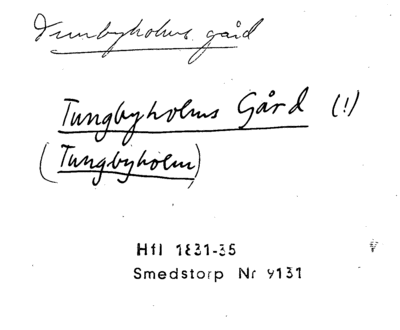 Tunbyholms gård
Tungbyholms Gård (!)
(Tungbyholm)
Hfl 1831-35
Smedstorp Nr 9131